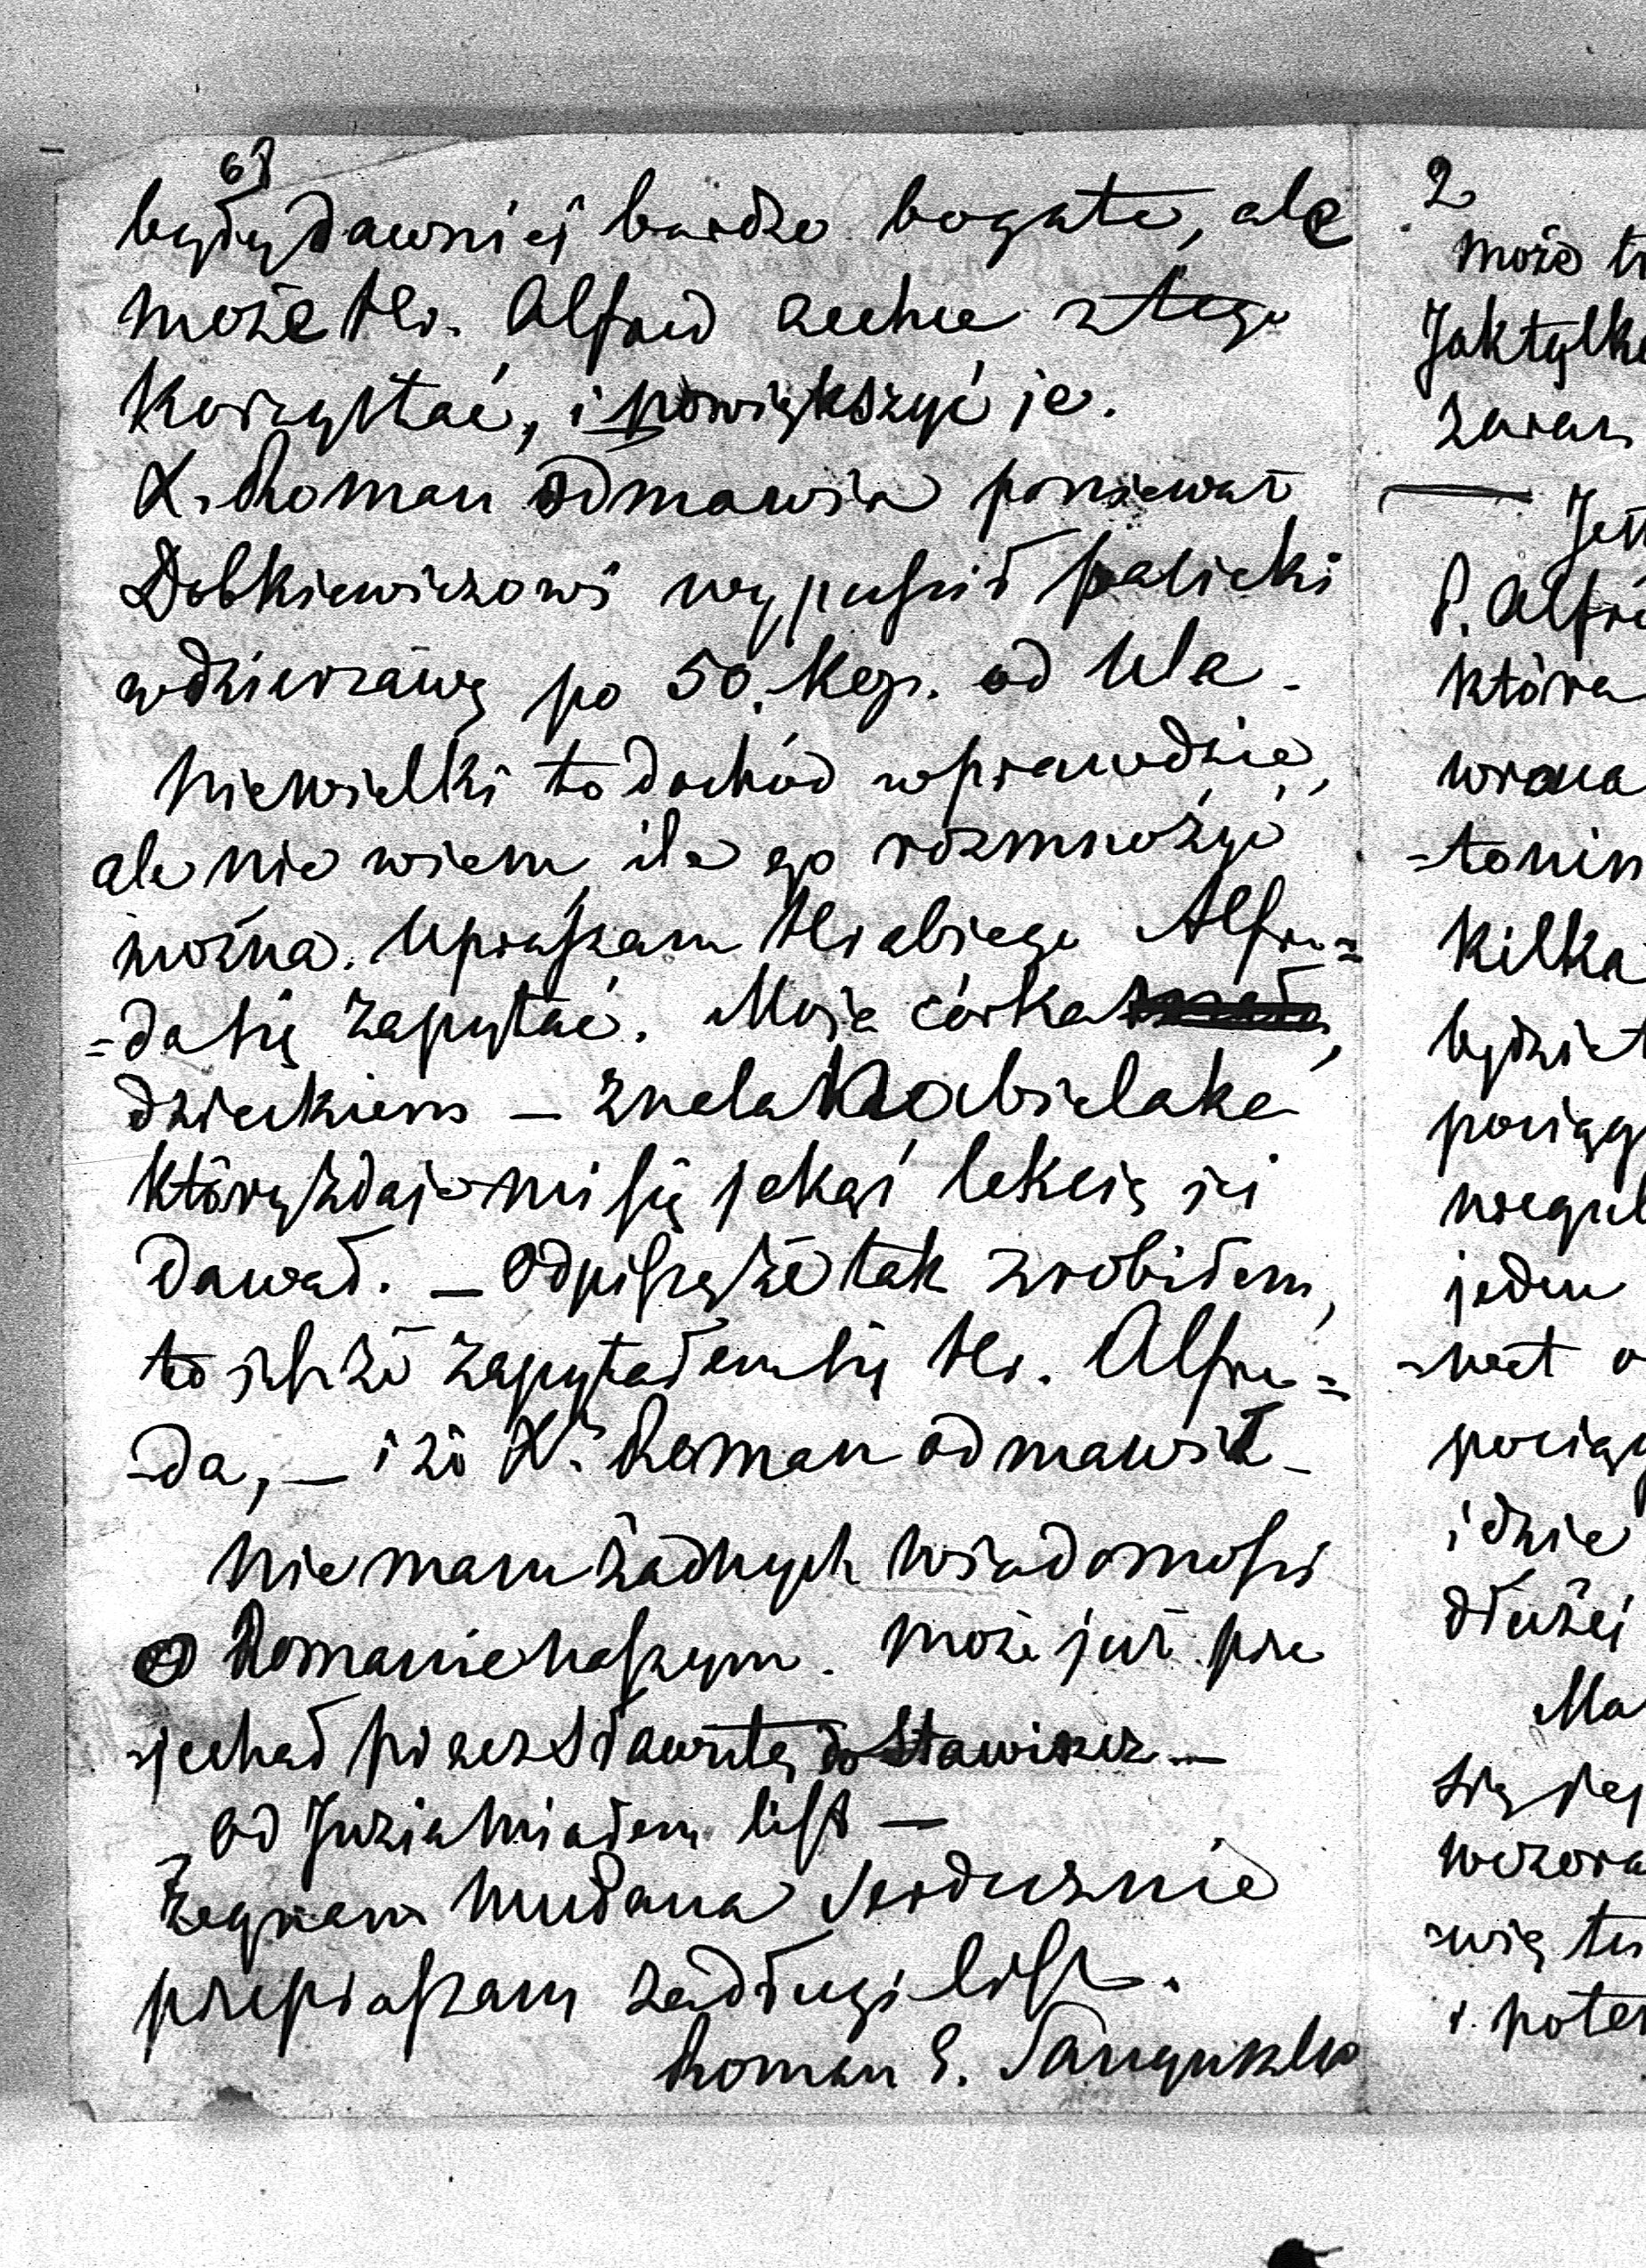 68
były dawniej bardzo bogate, ale
może Hr. Alfred zechce z tego
korzystać, i powiększyć je.
X. Roman odmawia ponieważ
Dobkiewiczowi wypuścił pasieki
w dzierżawę po 50. kop. od Ula –
Niewielki to dochód wprawdzie,
ale nie wiem, ile go rozmnożyć
można. Upraszam Hrabiego Alfre=
=da się zapytać. Moja córka
dzieckiem – znała Kobielaka
który zdaje mi się jakąś lekcię jej
dawał. – Odpiszę że tak zrobiłem,
to jest że zapytałem się Hr. Alfre=
-da, – i że X. Roman odmawia –
Nie mam żadnych wiadomości
o Romanie naszym. Może już prze
-jechał przez Sławutę do Stawiszcz –
od Juzia miałem list –
Żegnam Mudana serdecznie
przepraszam za długi list.
Roman S. Sanguszko
2
może
Jaktylko
zaraz
P. Alfre
która
-tonin
Kilka
będzie
pociąg
jeden
pociąg
idzie
dłużej
Ma
się jej
wczora
i poter